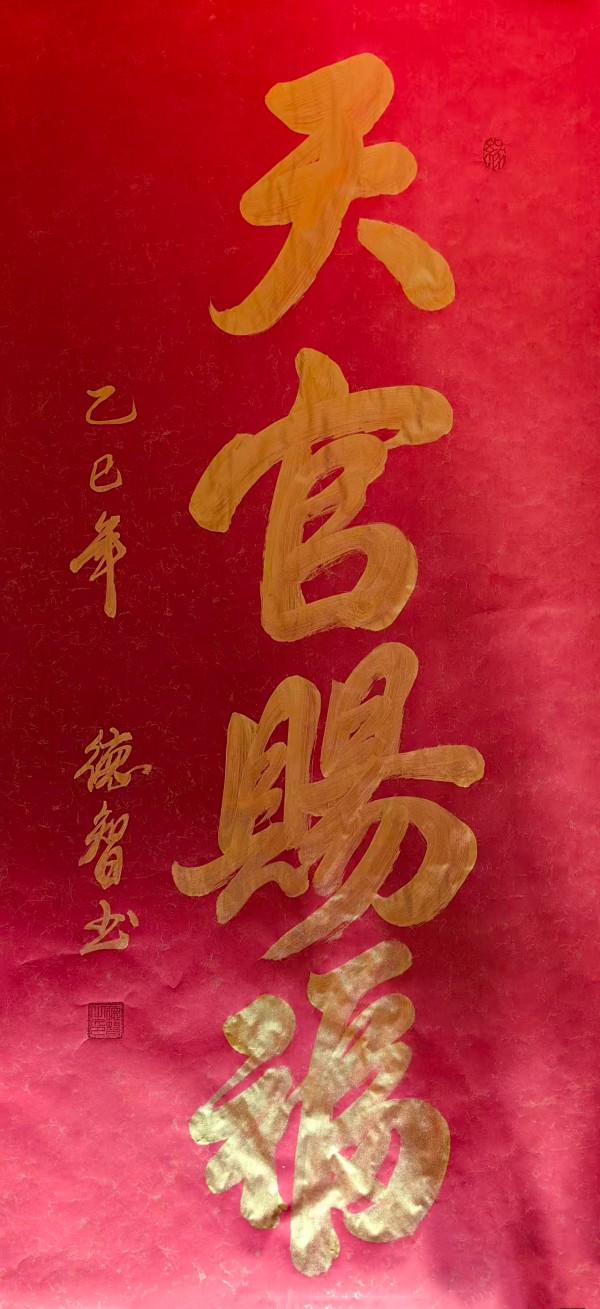 天官赐福
乙巳年
德智书